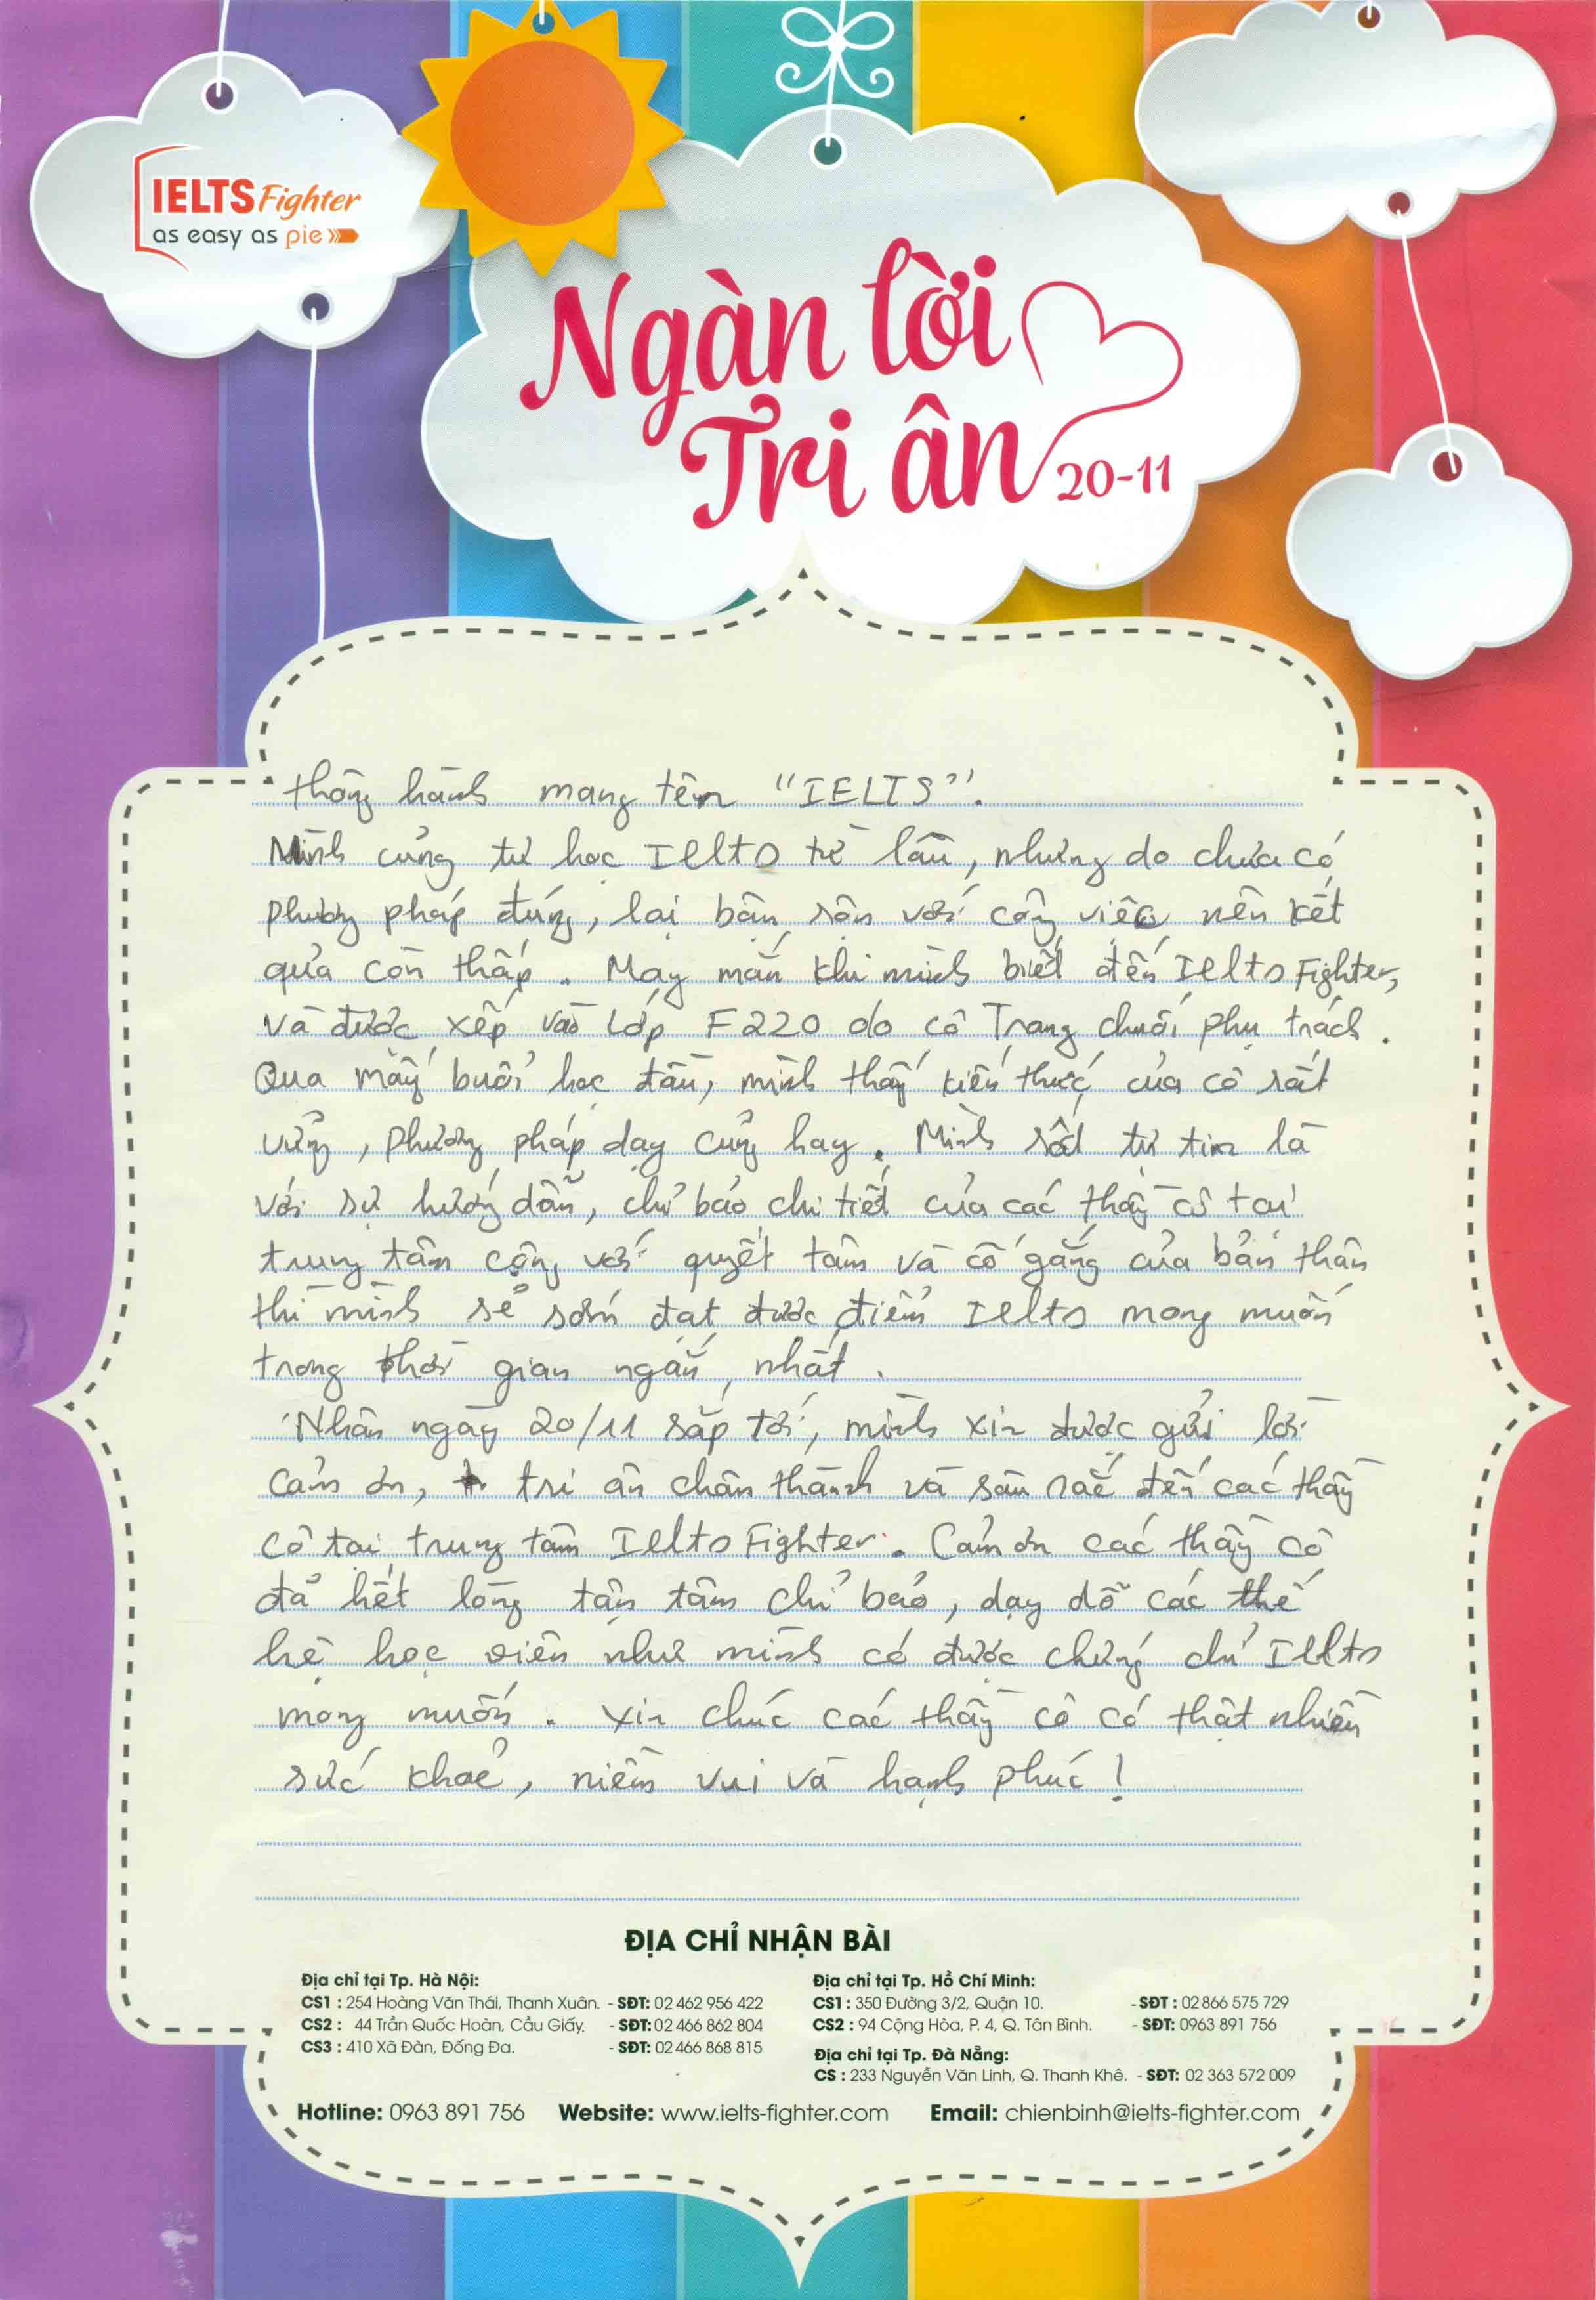 IELTS Fighter
as easy as pie
Ngàn lời
Tri ân
20-11
thông hành mang tên "IELTS".
Mình cũng tự học Ielts từ lâu, nhưng do chưa có
phương pháp đúng, lại bận rộn với công việc nên kết
quả còn thấp. May mắn khi mình biết đến Ielts Fighter,
và được xếp vào lớp F220 do cô Trang chuối phụ trách.
Qua mấy buổi học đầu, mình thấy kiến thức của cô rất
vững, phương pháp dạy cũng hay. Mình rất tự tin là
với sự hướng dẫn, chỉ bảo chi tiết của các thầy cô tại
trung tâm cộng với quyết tâm và cố gắng của bản thân
thì mình sẽ sớm đạt được điểm Ielts mong muốn
trong thời gian ngắn nhất.
Nhân ngày 20/11 sắp tới, mình xin được gửi lời
cảm ơn, tri ân chân thành và sâu sắc đến các thầy
cô tại trung tâm Ielts Fighter. Cảm ơn các thầy cô
đã hết lòng tận tâm chỉ bảo, dạy dỗ các thế
hệ học viên như mình có được chứng chỉ Ielts
mong muốn. Xin chúc các thầy cô có thật nhiều
sức khoẻ, niềm vui và hạnh phúc!
ĐỊA CHỈ NHẬN BÀI
Địa chỉ tại Tp. Hà Nội:
CS1 : 254 Hoàng Văn Thái, Thanh Xuân. - SĐT: 02 462 956 422
CS2 : 44 Trần Quốc Hoàn, Cầu Giấy. - SĐT: 02 466 862 804
CS3 : 410 Xã Đàn, Đống Đa. - SĐT: 02 466 868 815
Địa chỉ tại Tp. Hồ Chí Minh:
CS1 : 350 Đường 3/2, Quận 10. - SĐT : 02 866 575 729
CS2 : 94 Cộng Hòa, P. 4, Q. Tân Bình. - SĐT: 0963 891 756
Địa chỉ tại Tp. Đà Nẵng:
CS : 233 Nguyễn Văn Linh, Q. Thanh Khê. - SĐT: 02 363 572 009
Hotline: 0963 891 756 Website: www.ielts-fighter.com Email: chienbinh@ielts-fighter.com